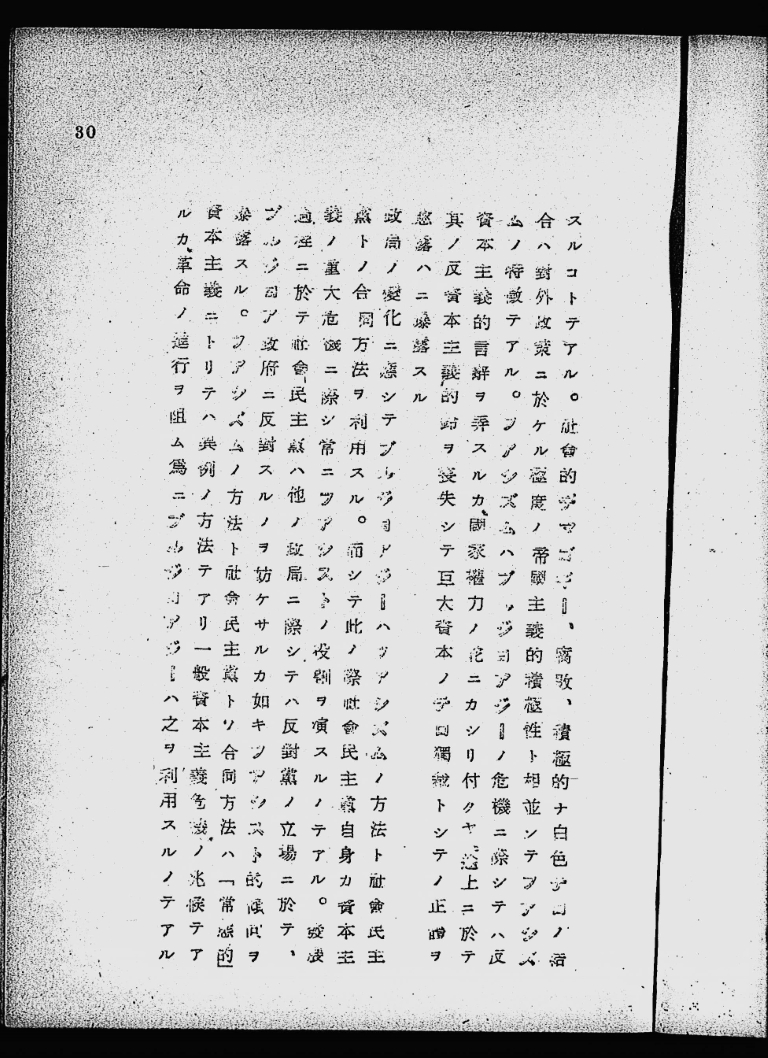 30
スルコトテアル。社會的デマゴギー、腐敗、積極的ナ白色テロノ結
合ハ對外政策ニ於ケル極度ノ帝國主義的積極性ト相並ンテファシズ
ムノ特徴テアル。ファシズムハブルジョアジーノ危機ニ際シテハ反
資本主義的言辭ヲ弄スルカ、國家權力ノ花ニカシリ付クヤ上ニ於テ
其ノ反資本主義的鈴ヲ喪失シテ巨大資本ノテロ獨裁トシテノ正體ヲ
露ハニ暴露スル
政局ノ變化ニ應シテブルジョアジーハファシズムノ方法ト社會民主
黨トノ合同方法ヲ利用スル。而シテ此ノ際社會民主黨自身カ資本主
義ノ重大危機ニ際シ常ニファシストノ役割ヲ演スルノテアル。發展
過程ニ於テ社會民主黨ハ他ノ政局ニ際シテハ反對黨ノ立場ニ於テ、
ブルジョア政府ニ反對スルノヲ妨ケサルカ如キファシスト的傾向ヲ
暴露スル。ファシズムノ方法ト社會民主黨トノ合同方法ハ「常態的」
資本主義ニトリテハ異例ノ方法テアリ一般資本主義危機ノ兆候テア
ルカ、革命ノ進行ヲ阻ム爲ニブルジョアジーハ之ヲ利用スルノテアル